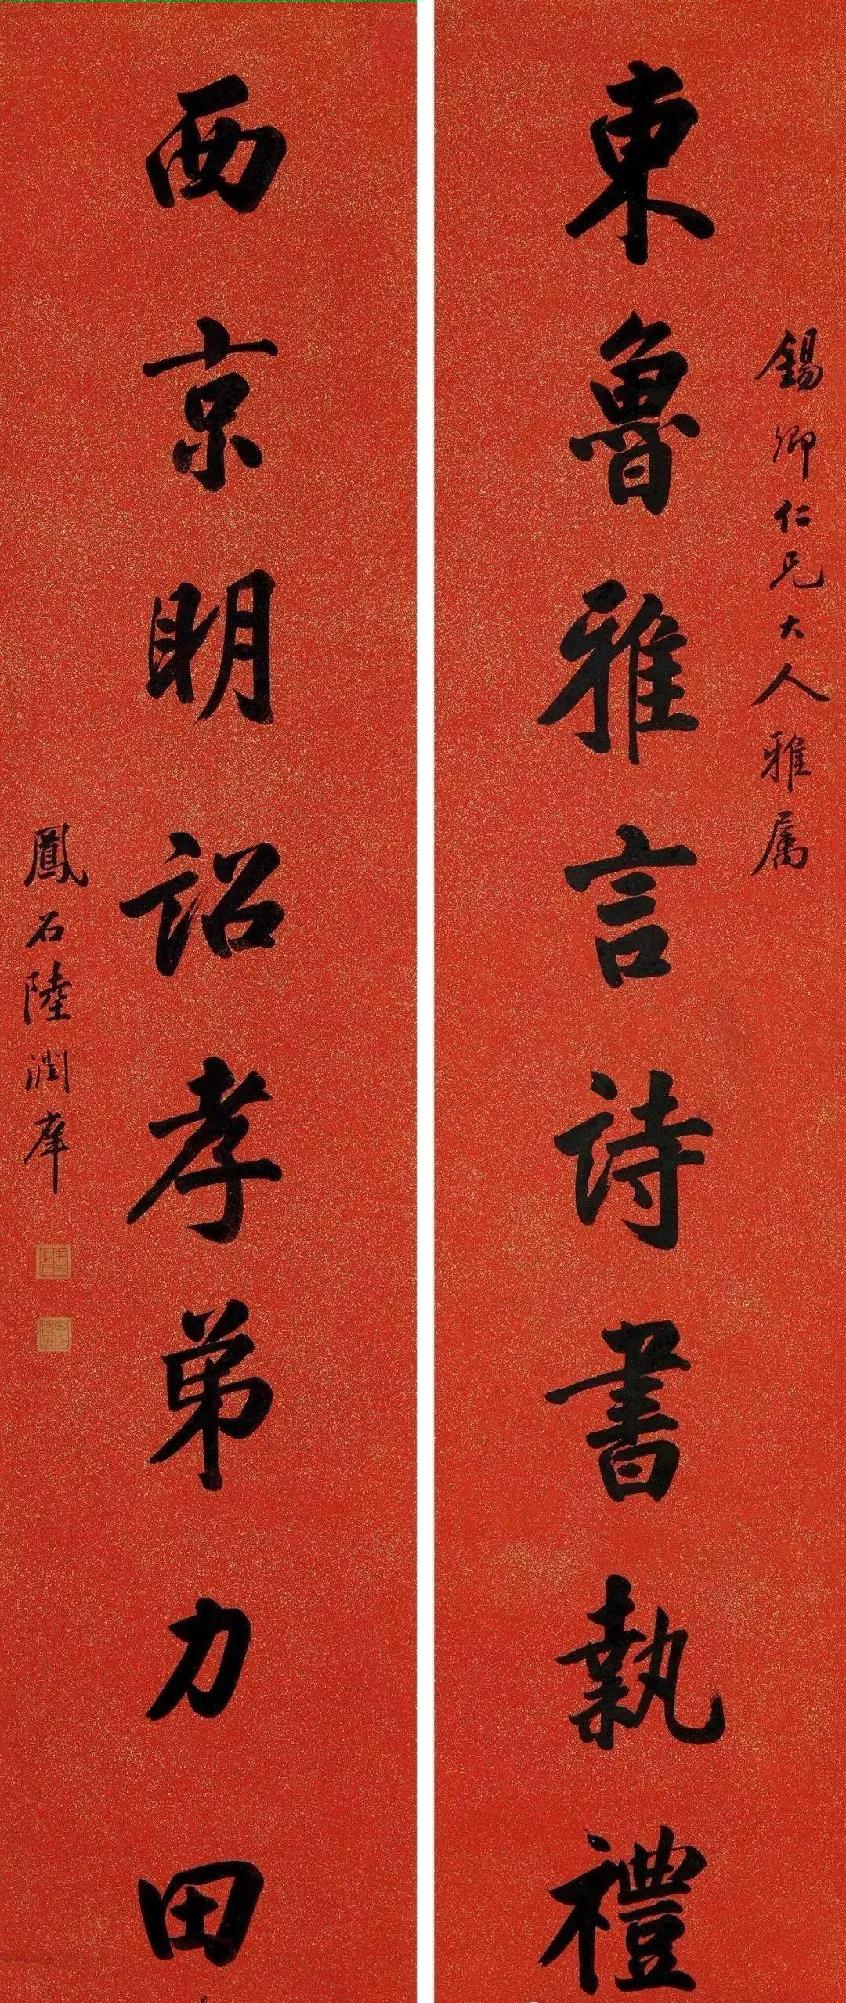 錫卿仁兄大人雅属
東魯雅言詩書執禮
西京明詔孝弟力田
鳳石陸潤庠